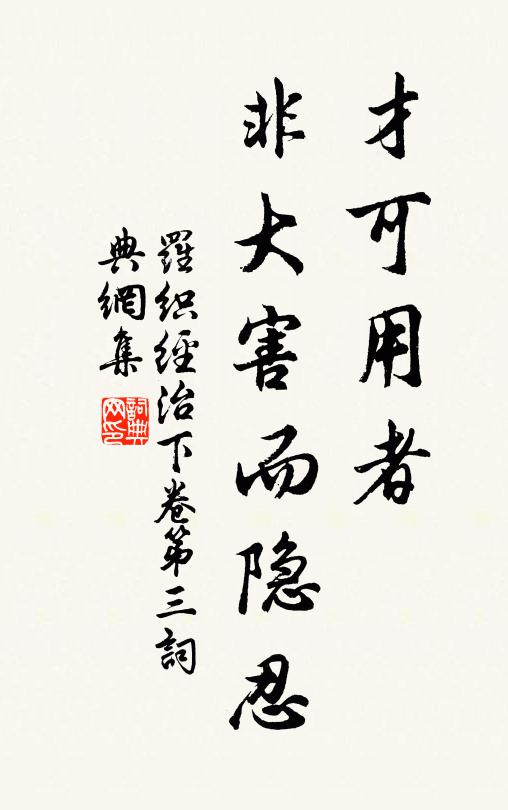 才可用者
非大害而隐忍
羅织經治下卷第三詞
典網集
詞典
网印